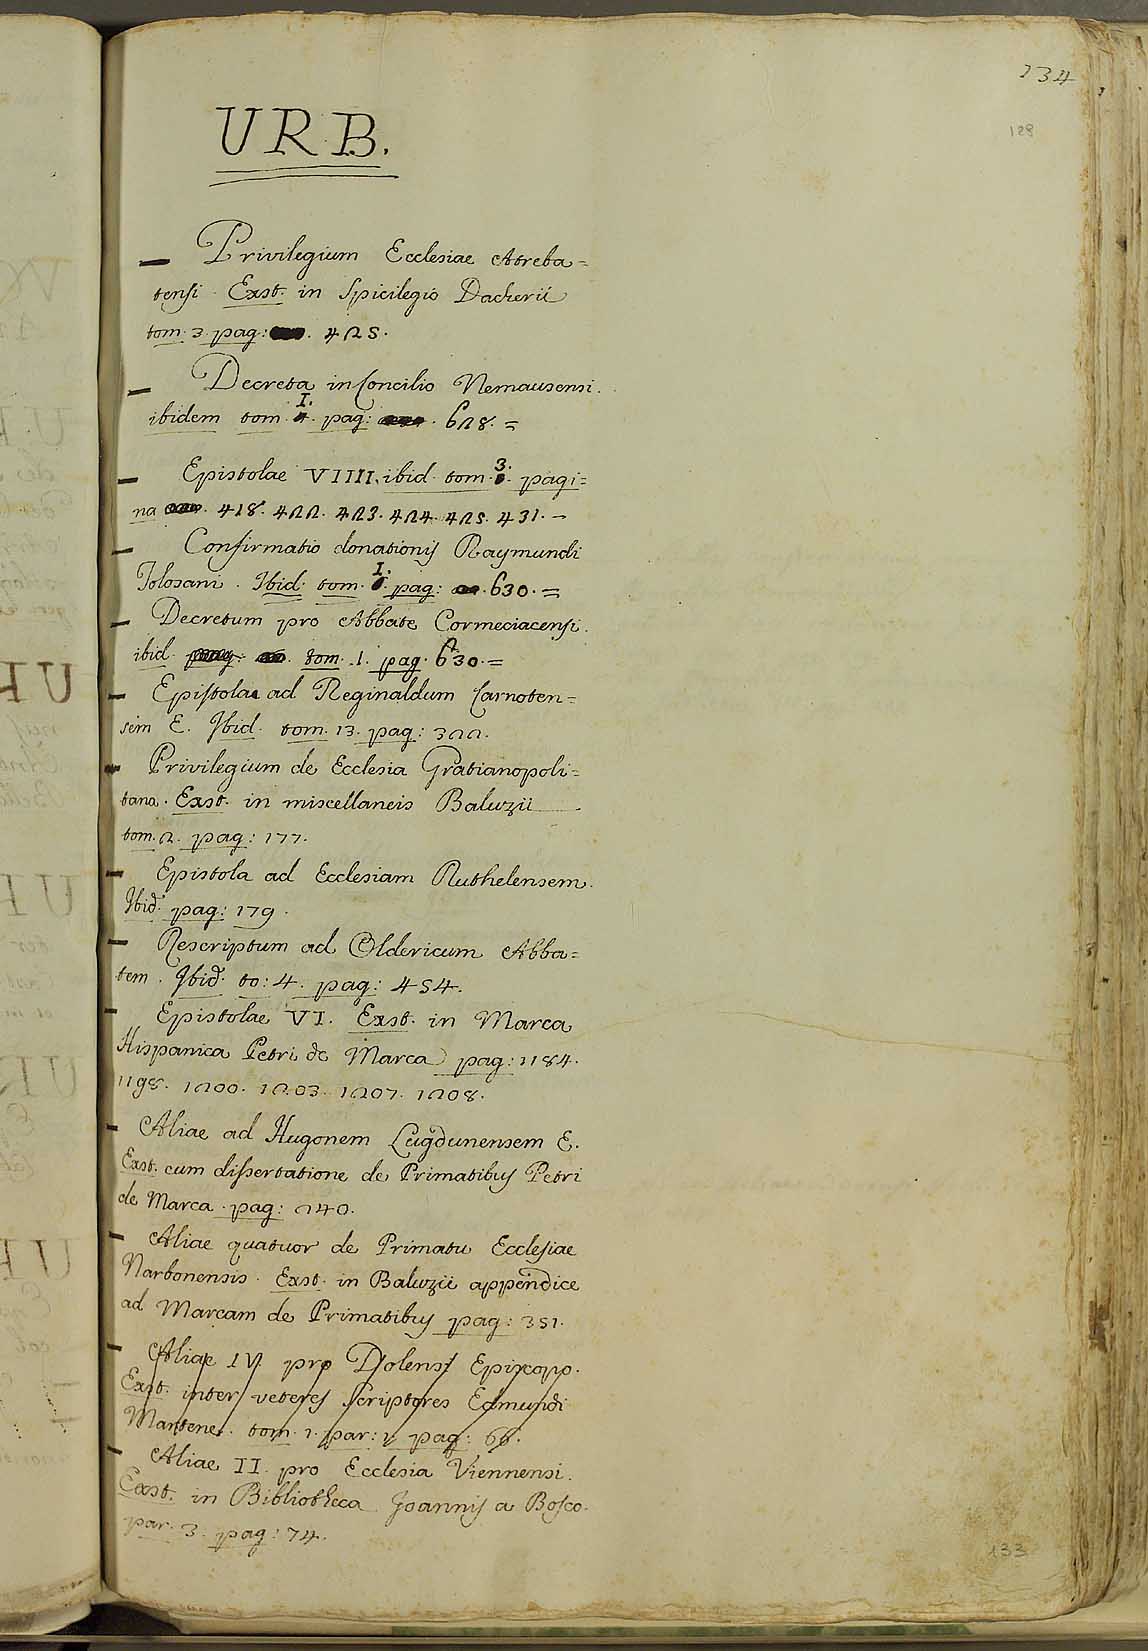 134
129
URB.
Privilegium Ecclesiae Atreba=
tensi. Exst. in Spicilegio Dacherii
tom. 3. pag: 425.
Decreta in Concilio Nemausensi.
ibidem tom. I. pag: 628. =
Epistolae VIIII. ibid. tom. 3. pagi=
na 418. 422. 423. 424. 425. 431. -
Confirmatio donationis Raymundi
Tolosani. Ibid. tom. I. pag: 630. =
Decretum pro Abbate Cormeciacensi.
ibid. tom. 1. pag. 630. =
Epistola ad Reginaldum Carnoten=
sem E. Ibid. tom. 13. pag: 322.
Privilegium de Ecclesia Gratianopoli=
tana. Exst. in miscellaneis Baluzii
tom. 2. pag: 177.
Epistola ad Ecclesiam Ruthelensem.
Ibid. pag: 179.
Rescriptum ad Oldericum Abba=
tem. Ibid. to: 4. pag: 454.
Epistolae VI. Exst. in Marca
Hispanica Petri de Marca pag: 1184.
1198. 1200. 1203. 1207. 1208.
Aliae ad Hugonem Lugdunensem E.
Exst. cum dissertatione de Primatibus Petri
de Marca. pag: 240.
Aliae quatuor de Primatu Ecclesiae
Narbonensis. Exst. in Baluzii appendice
ad Marcam de Primatibus pag: 351.
Aliae IV. pro Dolensi Episcopo.
Exst. inter veteres scriptores Edmundi
Martene. tom. 1. par: 1. pag: 66.
Aliae II. pro Ecclesia Viennensi.
Exst. in Bibliotheca Joannis a Bosco.
par. 3. pag: 74.
133